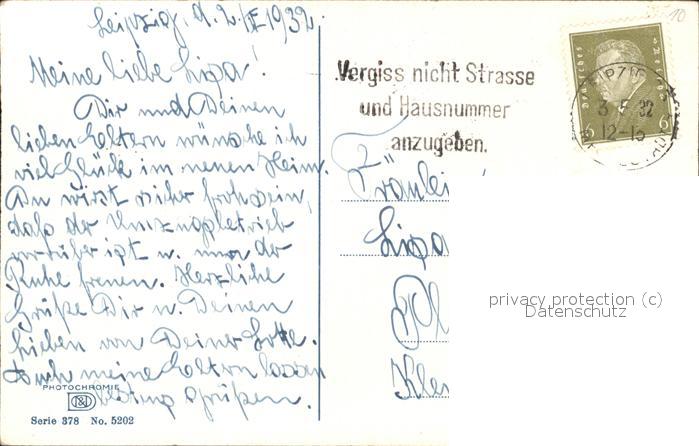 Leipzig, d. 2./V. 1932.
Meine liebe Lisa!
Dir und Deinen
lieben Eltern wünsche ich
viel Glück im neuen Heim.
Du wirst sicher froh sein,
daß der Umzugsbetrieb
vorüber ist u. nun der
Ruhe freuen. Herzliche
Grüße Dir u. Deinen
Lieben von Deiner Lotte.
Auch meine Eltern lassen
bestens grüßen.
PHOTOCHROMIE
Serie 378 No. 5202
Vergiss nicht Strasse
und Hausnummer
anzugeben.
Deutsches Reich
6 6
LEIPZIG
3 5 32
12-13
Fräulei
Lisa
Kle
privacy protection (c)
Datenschutz
10